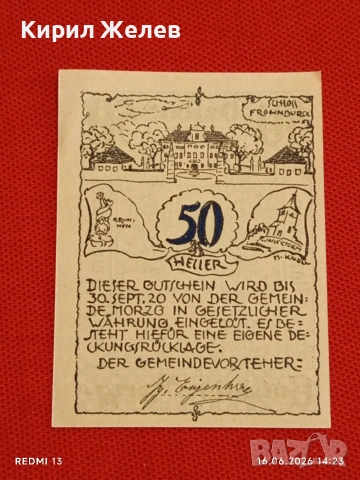 Кирил Желев
SCHLOSS
FROHNBURG
BRUN-
NEN
50
HELLER
DIESER GUTSCHEIN WIRD BIS
30. SEPT. 20 VON DER GEMEIN-
DE MORZG IN GESETZLICHER
WÄHRUNG EINGELÖST. ES BE-
STEHT HIEFÜR EINE EIGENE DE-
CKUNGSRÜCKLAGE.
DER GEMEINDEVORSTEHER:
REDMI 13
16.06.2026 14:23
BAZAR